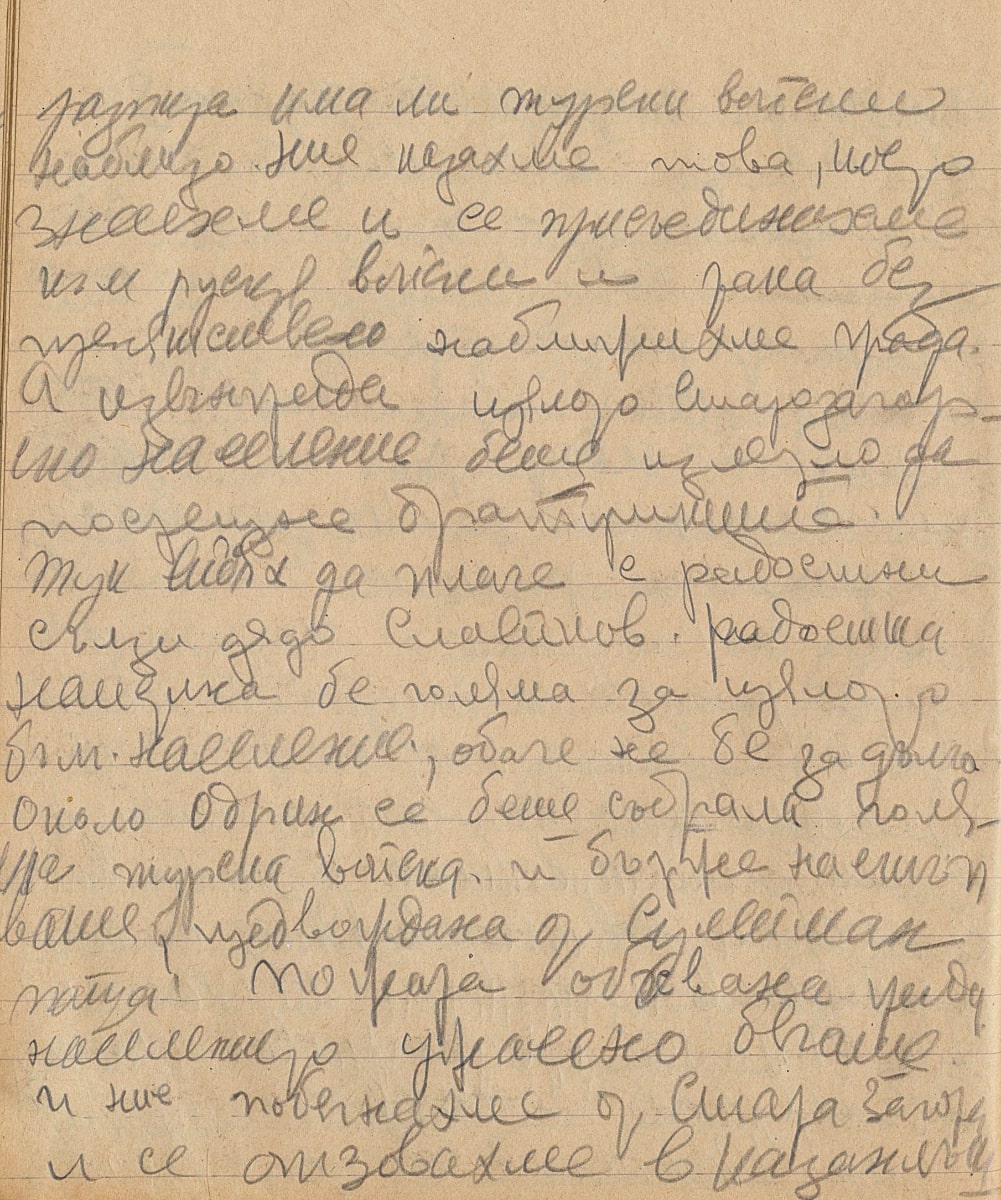 разпита има ли турски войски
наблизо. Ние казахме това, което
знаехме и се присъединихме
към руски войски и така без
наближихме града.
А извън града цялото Старозагор-
ско население беше излязло да
посрещне братушките.
Тук видях да плаче с радостни
сълзи дядо Славейков. радостта
наистина бе голяма за цялото
бъл. население, обаче не бе за дълго
около Одрин се беше събрала голя-
ма турска войска и бързо настъп
ваше, предвождана от Сулейман
паша. По тая обстановка
населението ужасено бягаше
и ние побегнахме от Стара Загора
и се отзовахме в Казанлък